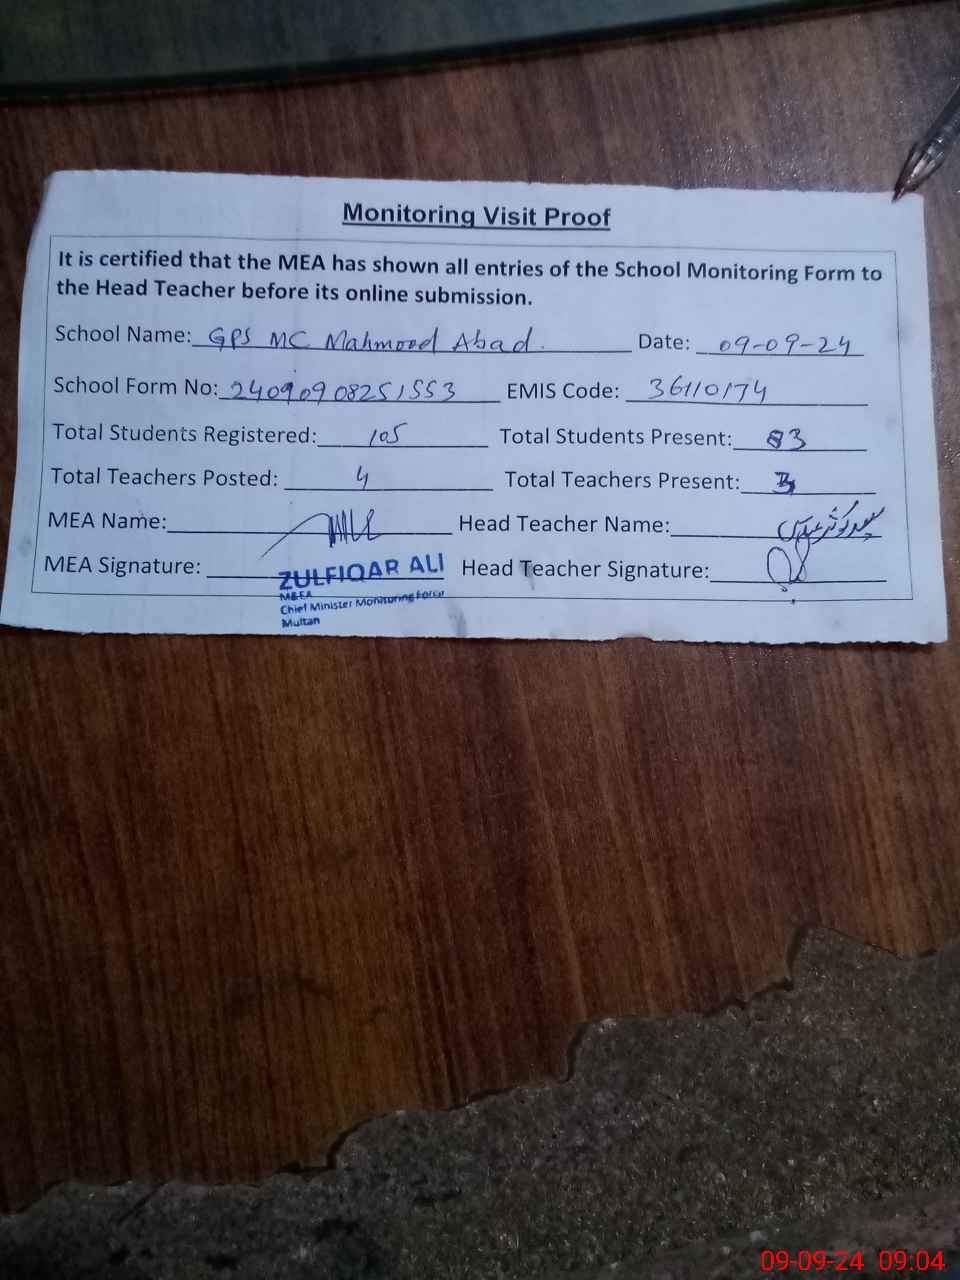 Monitoring Visit Proof
It is certified that the MEA has shown all entries of the School Monitoring Form to
the Head Teacher before its online submission.
School Name: GPS MC Mahmood Abad. Date: 09-09-24
School Form No: 24090908251553 EMIS Code: 36110174
Total Students Registered: 105 Total Students Present: 83
Total Teachers Posted: 4 Total Teachers Present: 3
MEA Name: Head Teacher Name:
MEA Signature: Head Teacher Signature:
ZULFIQAR ALI
M&EA
Chief Minister Monitoring Force
Multan
09-09-24 09:04